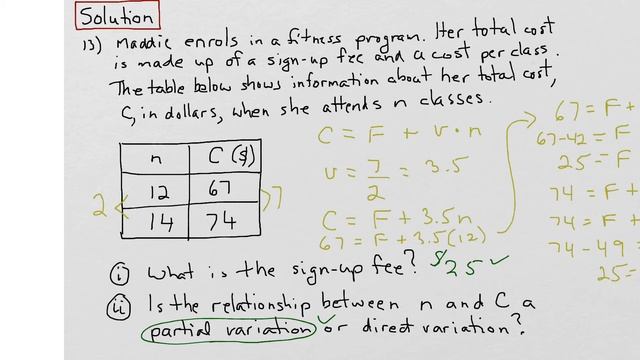 Solution
13) Maddie enrols in a fitness program. Her total cost
is made up of a sign-up fee and a cost per class.
The table below shows information about her total cost,
C, in dollars, when she attends n classes.
n C ($)
12 67
14 74
2 < > 7
C = F + v · n
v = 7/2 = 3.5
C = F + 3.5n
67 = F + 3.5(12)
67 = F +
67-42 = F
25 = F
74 = F +
74 = F +
74 - 49 =
25 =
(i) What is the sign-up fee? $25 ✓
(ii) Is the relationship between n and C a
partial variation ✓ or direct variation?